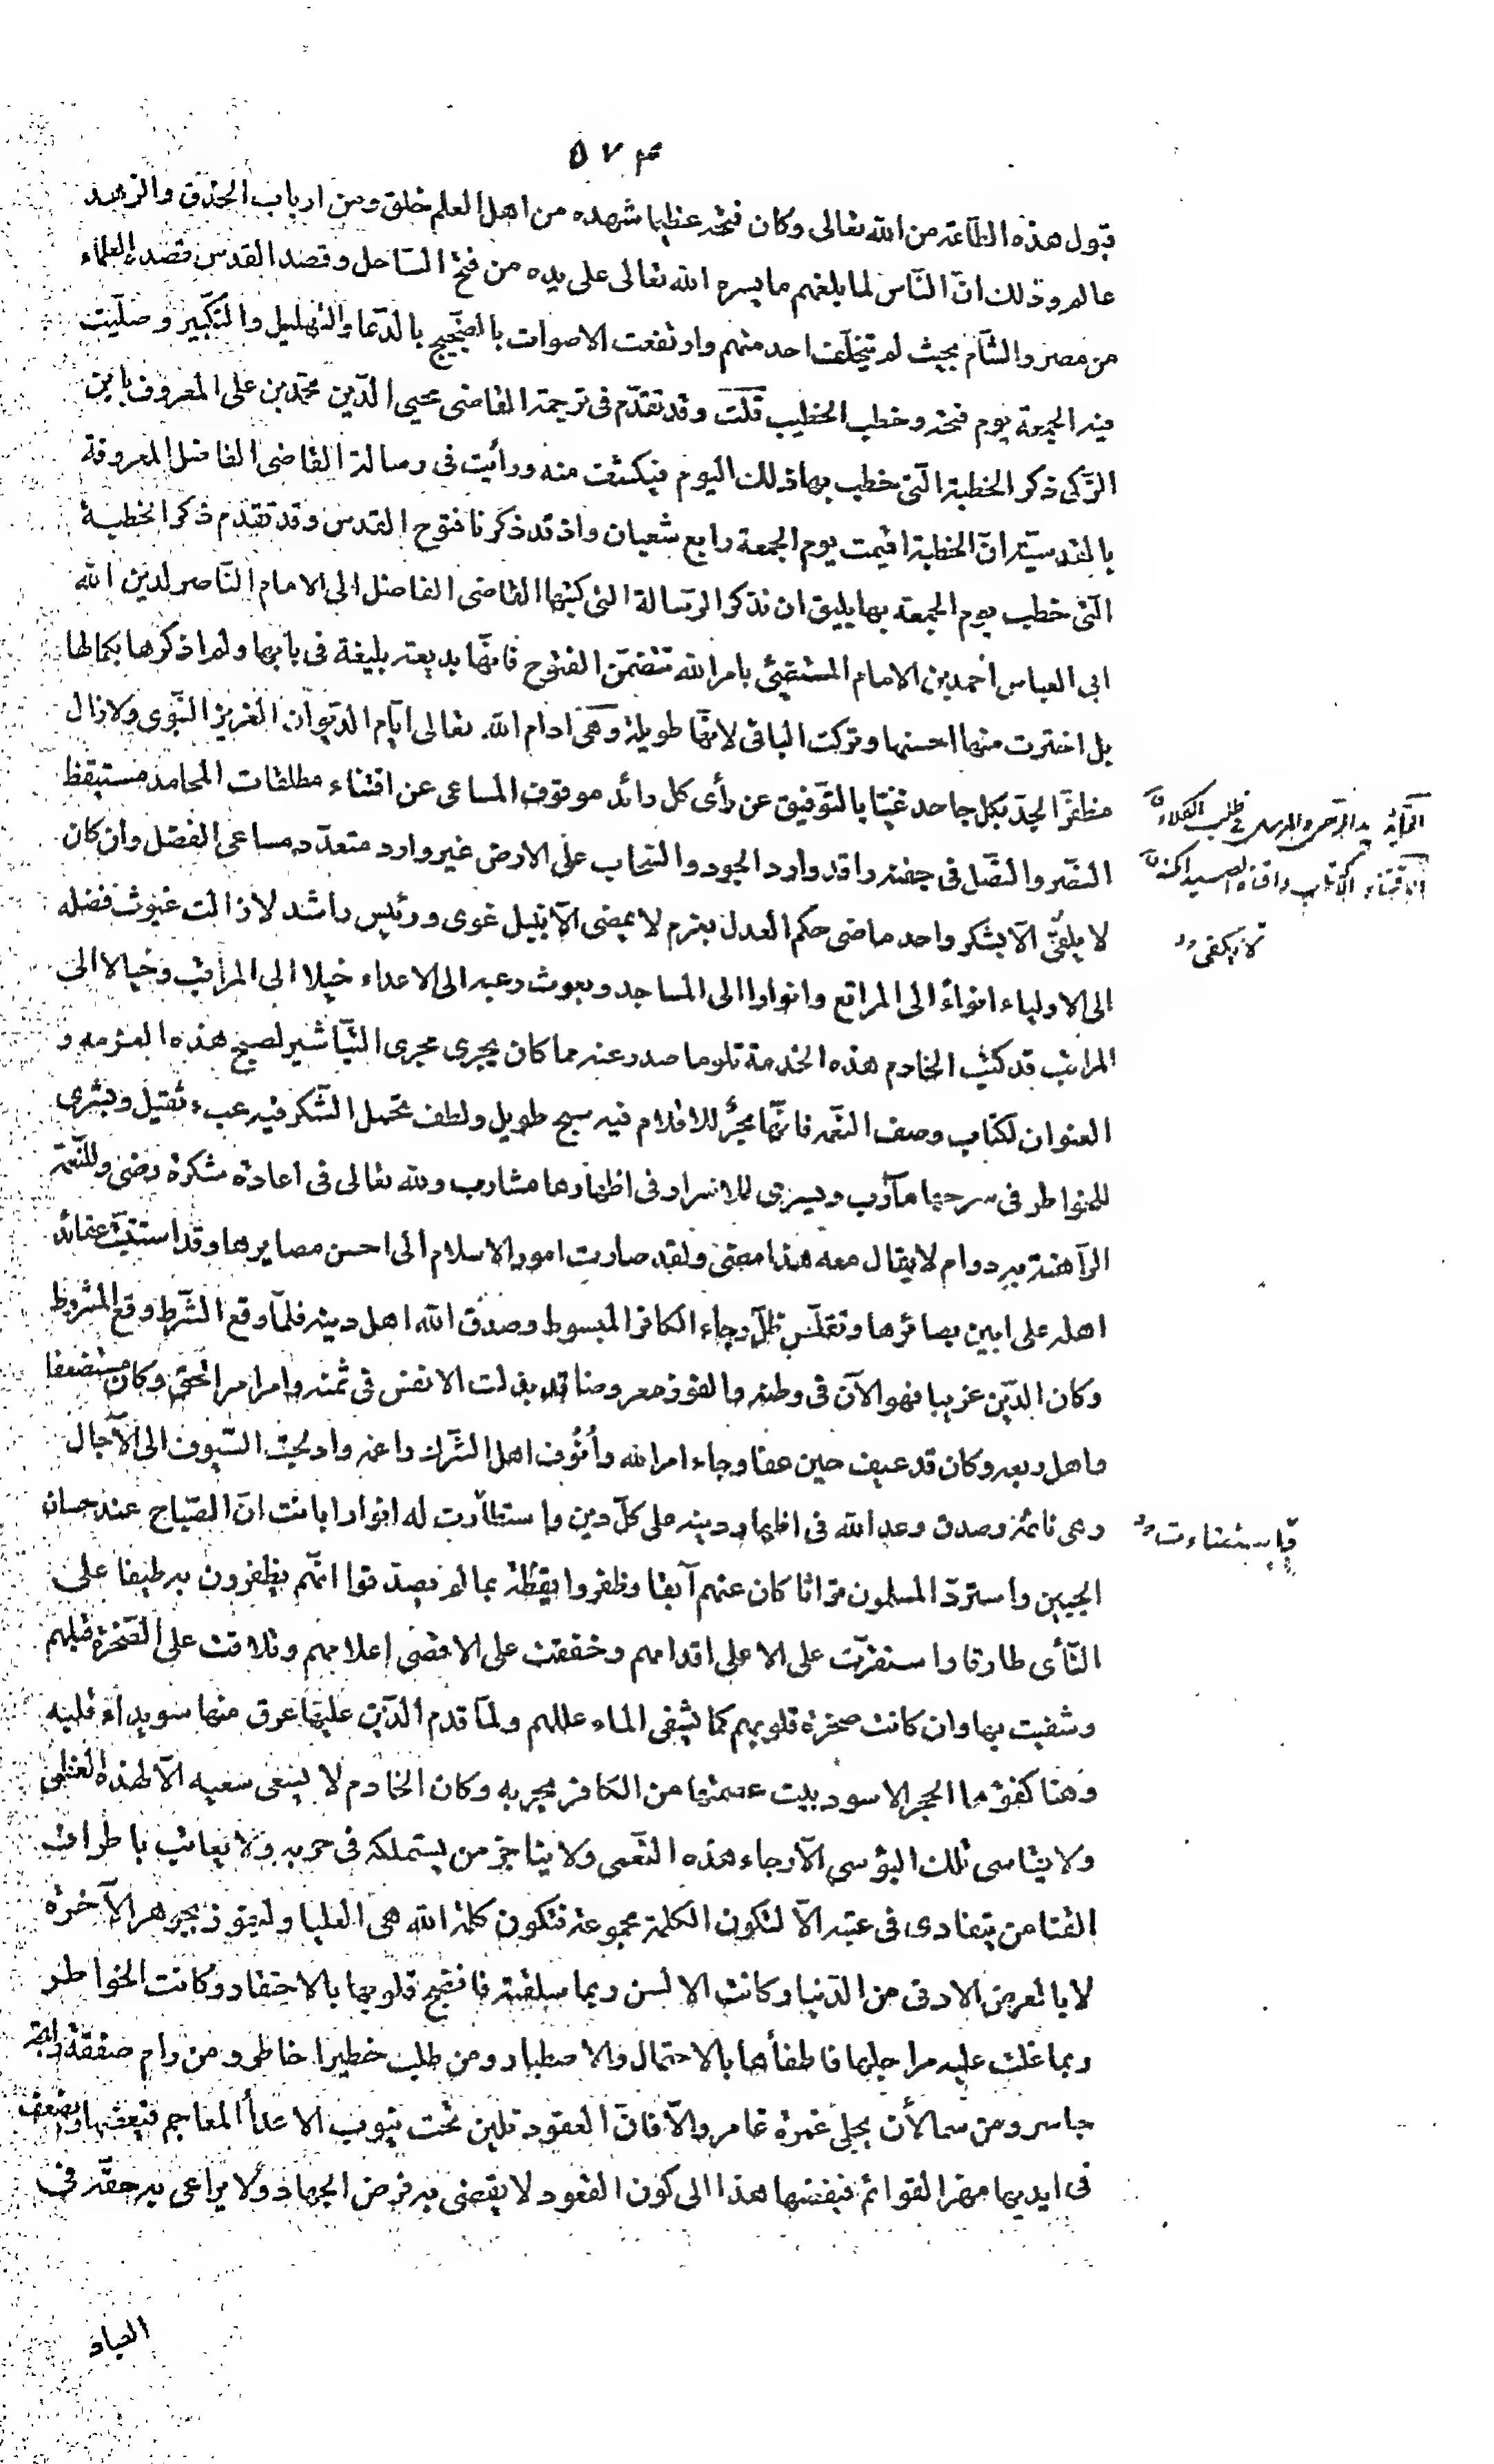 ٥٧٣
قبول هذه الطاعة من الله تعالى وكان فتحه عظيما شهده من اهل العلم خلق ومن ارباب الحذق والزهد
عالم وذلك انّ النّاس لما بلغهم ما يسره الله تعالى على يده من فتح السّاحل وقصد القدس قصده العلماء
من مصر والشّام بحيث لم يتخلّف احد منهم وارتفعت الاصوات بالضّجيج بالدّعا والتّهليل والتّكبير وصلّيت
فيه الجمعة يوم فتحه وخطب الخطيب قلت وقد تقدّم فى ترجمة القاضى محيى الدّين محمّد بن على المعروف بابن
الزّكى ذكر الخطبة الّتى خطب بها ذلك اليوم فيكشف منه ورأيت فى رسالة القاضى الفاضل المعروفة
بالقدسيّة انّ الخطبة اقيمت يوم الجمعة رابع شعبان واذ قد ذكرنا فتوح القدس وقد تقدّم ذكر الخطبة
الّتى خطب يوم الجمعة بها يليق ان نذكر الرّسالة التى كتبها القاضى الفاضل الى الامام النّاصر لدين الله
ابى العباس احمد بن الامام المستضيئ بامر الله تتضمّن الفتوح فانّها بديعة بليغة فى بابها ولم اذكرها بكمالها
بل اخترت منها احسنها وتركت الباقى لانّها طويلة وهى ادام الله تعالى ايّام الدّيوان العزيز النّبوى ولا زال
مظفّر الجدّ بكل جاحد غنيّا بالتّوفيق عن رأى كل رائد موقوف المساعى عن اقتناء مطلقات المحامد مستيقظ
النّصر والنّصل فى جفنه راقد وارد الجود والسّحاب على الارض غير وارد متعدّد مساعى الفضل وان كان
لا يلقىّ الّا بشكر واحد ماضى حكم العدل بعزم لا يمضى الّا بنبل غوى ورئيس راشد لا زالت غيوث فضله
الى الاولياء انواءً الى المراتع وانوارا الى المساجد وبعوث رعبه الى الاعداء خيلا الى المراقب وخيالا الى
المراقد قد كتب الخادم هذه الخدمة تلو ما صدر عنه مما كان يجرى مجرى التّباشير لصبح هذه العزمه و
العنوان لكتاب وصف النّعمه فانّها بحرٌ للاقلام فيه سبح طويل ولطف تحمل الشّكر فيه عبء ثقيل وبشرى
للخواطر فى شرحها مآرب ويسرى للاسرار فى اظهارها مشارب ولله تعالى فى اعادة شكره رضى وللنّعمة
الرّاهنة به دوام لا يقال معه هذا مضى ولقد صارت امور الاسلام الى احسن مصايرها وقد استتبّت عقائد
اهله على ابين بصائرها وتقلّص ظلّ رجاء الكافر المبسوط وصدق الله اهل دينه فلمّا وقع الشّرط وقع المشروط
وكان الدّين غريبا فهو الآن فى وطنه والفوز معروضا قد بذلت الانفس فى ثمنه وامر امر الحقّ وكان مستضعفا
واهل ربعه وكان قد عيف حين عفا وجاء امر الله وأُنُوف اهل الشّرك راغمه وادلجت السّيوف الى الآجال
وهى نائمة وصدق وعد الله فى اظهار دينه على كلّ دين واستطارت له انوار ابانت انّ الصّباح عندها حان
الجبين واسترد المسلمون تراثا كان عنهم آبقا وظفروا يقظة بما لم يصدّقوا انهم يظفرون به طيفا على
النّأى طارقا واستقرّت على الاعلى اقدامهم وخفقت على الاقصى اعلامهم وتلاقت على الصّخرة قبلهم
وشفيت بها وان كانت صخرة قلوبهم كما تشفى الماء عللهم ولمّا قدم الدّين عليها عرق منها سويداء قلبه
وهنا كفؤها الحجر الاسود ببيت عصمتها من الكافر بحربه وكان الخادم لا يسعى سعيه الّا لهذه العظمى
ولا يقاسى تلك البؤسى الّا رجاء هذه النّعمى ولا يناجز من يستمكله فى حربه ولا يعاتب باطراف
القنا من يتمادى فى عتبه الّا لتكون الكلمة مجموعة فتكون كلمة الله هى العليا وليفوز بجوهر الآخرة
لا بالعرض الادنى من الدّنيا وكانت الالسن ربما سلقته فانضج قلوبها بالاحتقار وكانت الخواطر
ربما غلت عليه مراجلها فاطفأها بالاحتمال والاصطبار ومن طلب خطيرا خاطر ومن رام صفقة رابحة
جاسر ومن سما لأن يجلّى غمرة غامر والّا فانّ القعود تلين تحت نيوب الاعداء المعاجم فتعضّها ويضعف
فى ايديها مهر القوائم فيفضها هذا الى كون القعود لا يقضى به فرض الجهاد ولا يراعى به حقّه فى
العباد
لا يكفى
واستضاءت